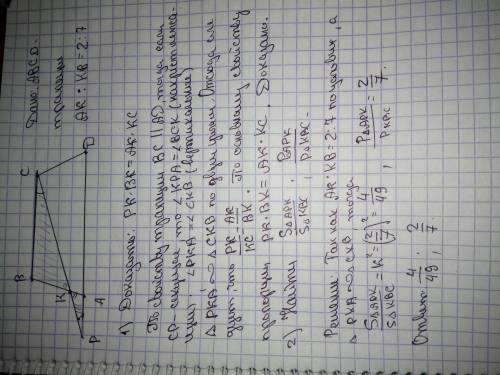 B
C
K
P
A
D
Дано: ABCD.
трапеция
AK : KB = 2:7
1) Доказать: PK·BK = AK·KC
По свойству трапеции BC || AD, тогда если
CP - секущая то ∠KPA = ∠BCK (накрестлежа-
щие), ∠PKA = ∠CKB (вертикальные)
△ PKA ∼ △ CKB по двум углам. Отсюда сле
дует, что PK/KC = AK/BK. По основному свойству
пропорции PK·BK = AK·KC. Доказано.
2) Найти S△APK/S△KBC ; P△APK/P△KBC.
Решение: Так как AK:KB = 2:7 по условию, а
△ PKA ∼ △ CKB тогда
S△APK/S△KBC = K² = (2/7)² = 4/49 ; P△APK/PKBC = 2/7.
Ответ: 4/49 ; 2/7.